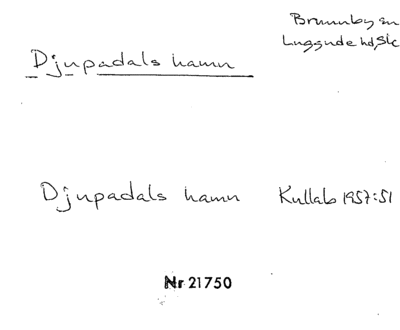 Brunnby sn
Luggude hd, Sk
Djupadals hamn
Djupadals hamn Kullab 1957:51
Nr 21750